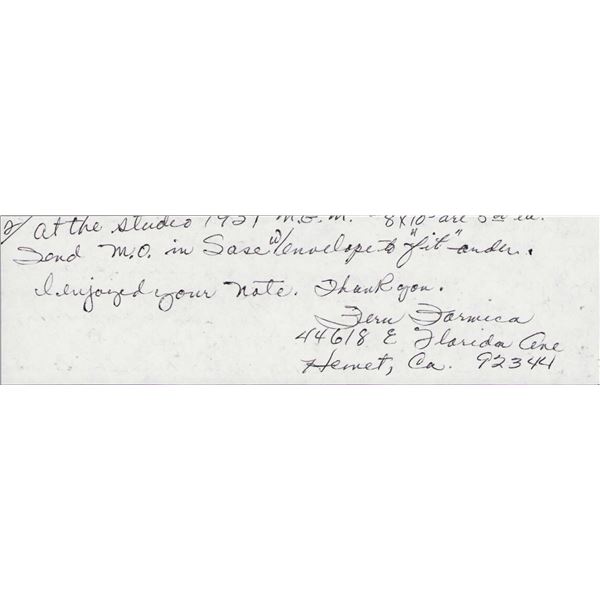 2/ at the studio 1921 M.G.M. - 8x10 - are 5.00 ea.
Send M.O. in Sase w/envelope to "fit" order.
I enjoyed your note. Thank you.
Fern Formica
44618 E Florida Ave
Hemet, Ca. 92344